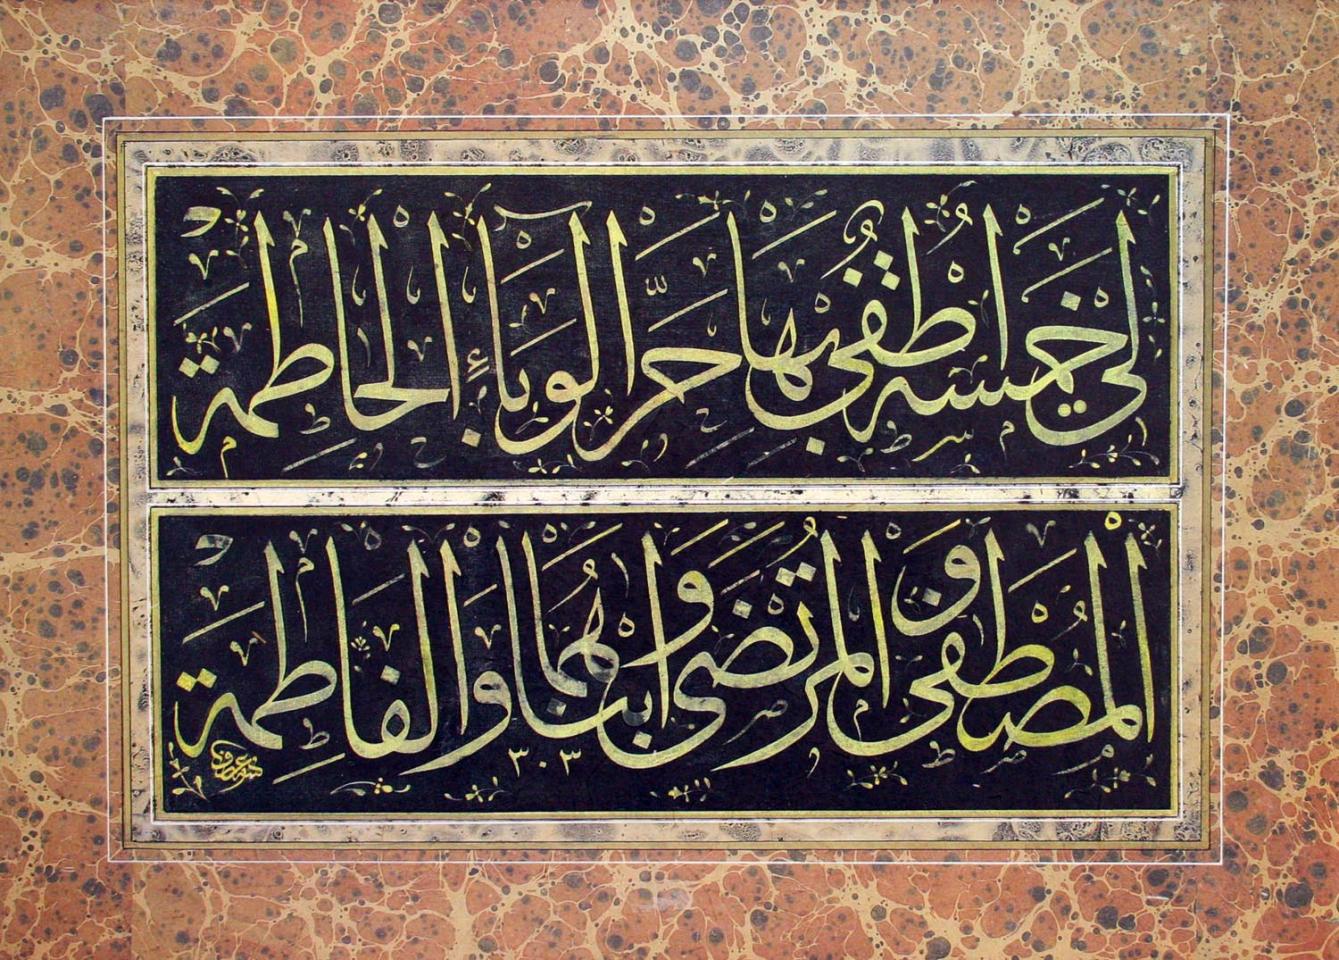 لِي خَمْسَةٌ أُطْفِي بِهَا حَرَّ الْوَبَاءِ الْحَاطِمَةْ
الْمُصْطَفٰى وَالْمُرْتَضٰى وَابْنَاهُمَا وَالْفَاطِمَةْ
٣٠٣